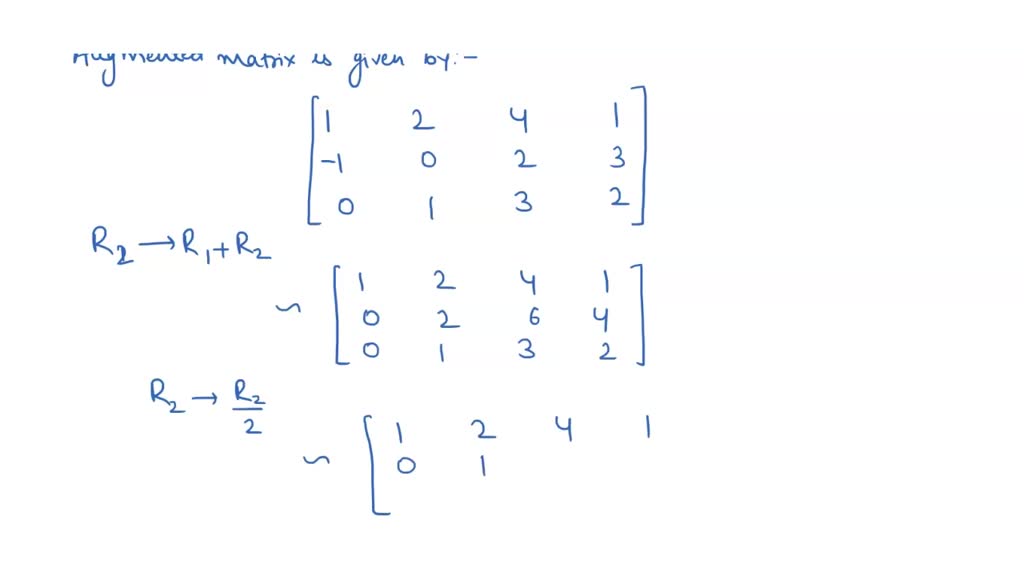 Augmented matrix is given by:-
1 2 4 1
-1 0 2 3
0 1 3 2
R2 → R1 + R2
~ 1 2 4 1
0 2 6 4
0 1 3 2
R2 → R2/2
~ 1 2 4 1
0 1